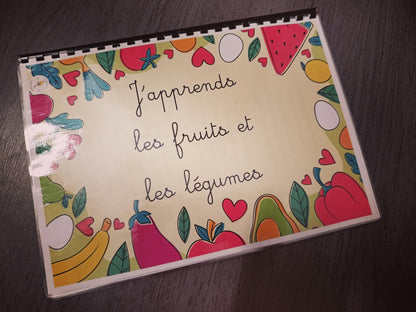 J'apprends
les fruits et
les légumes